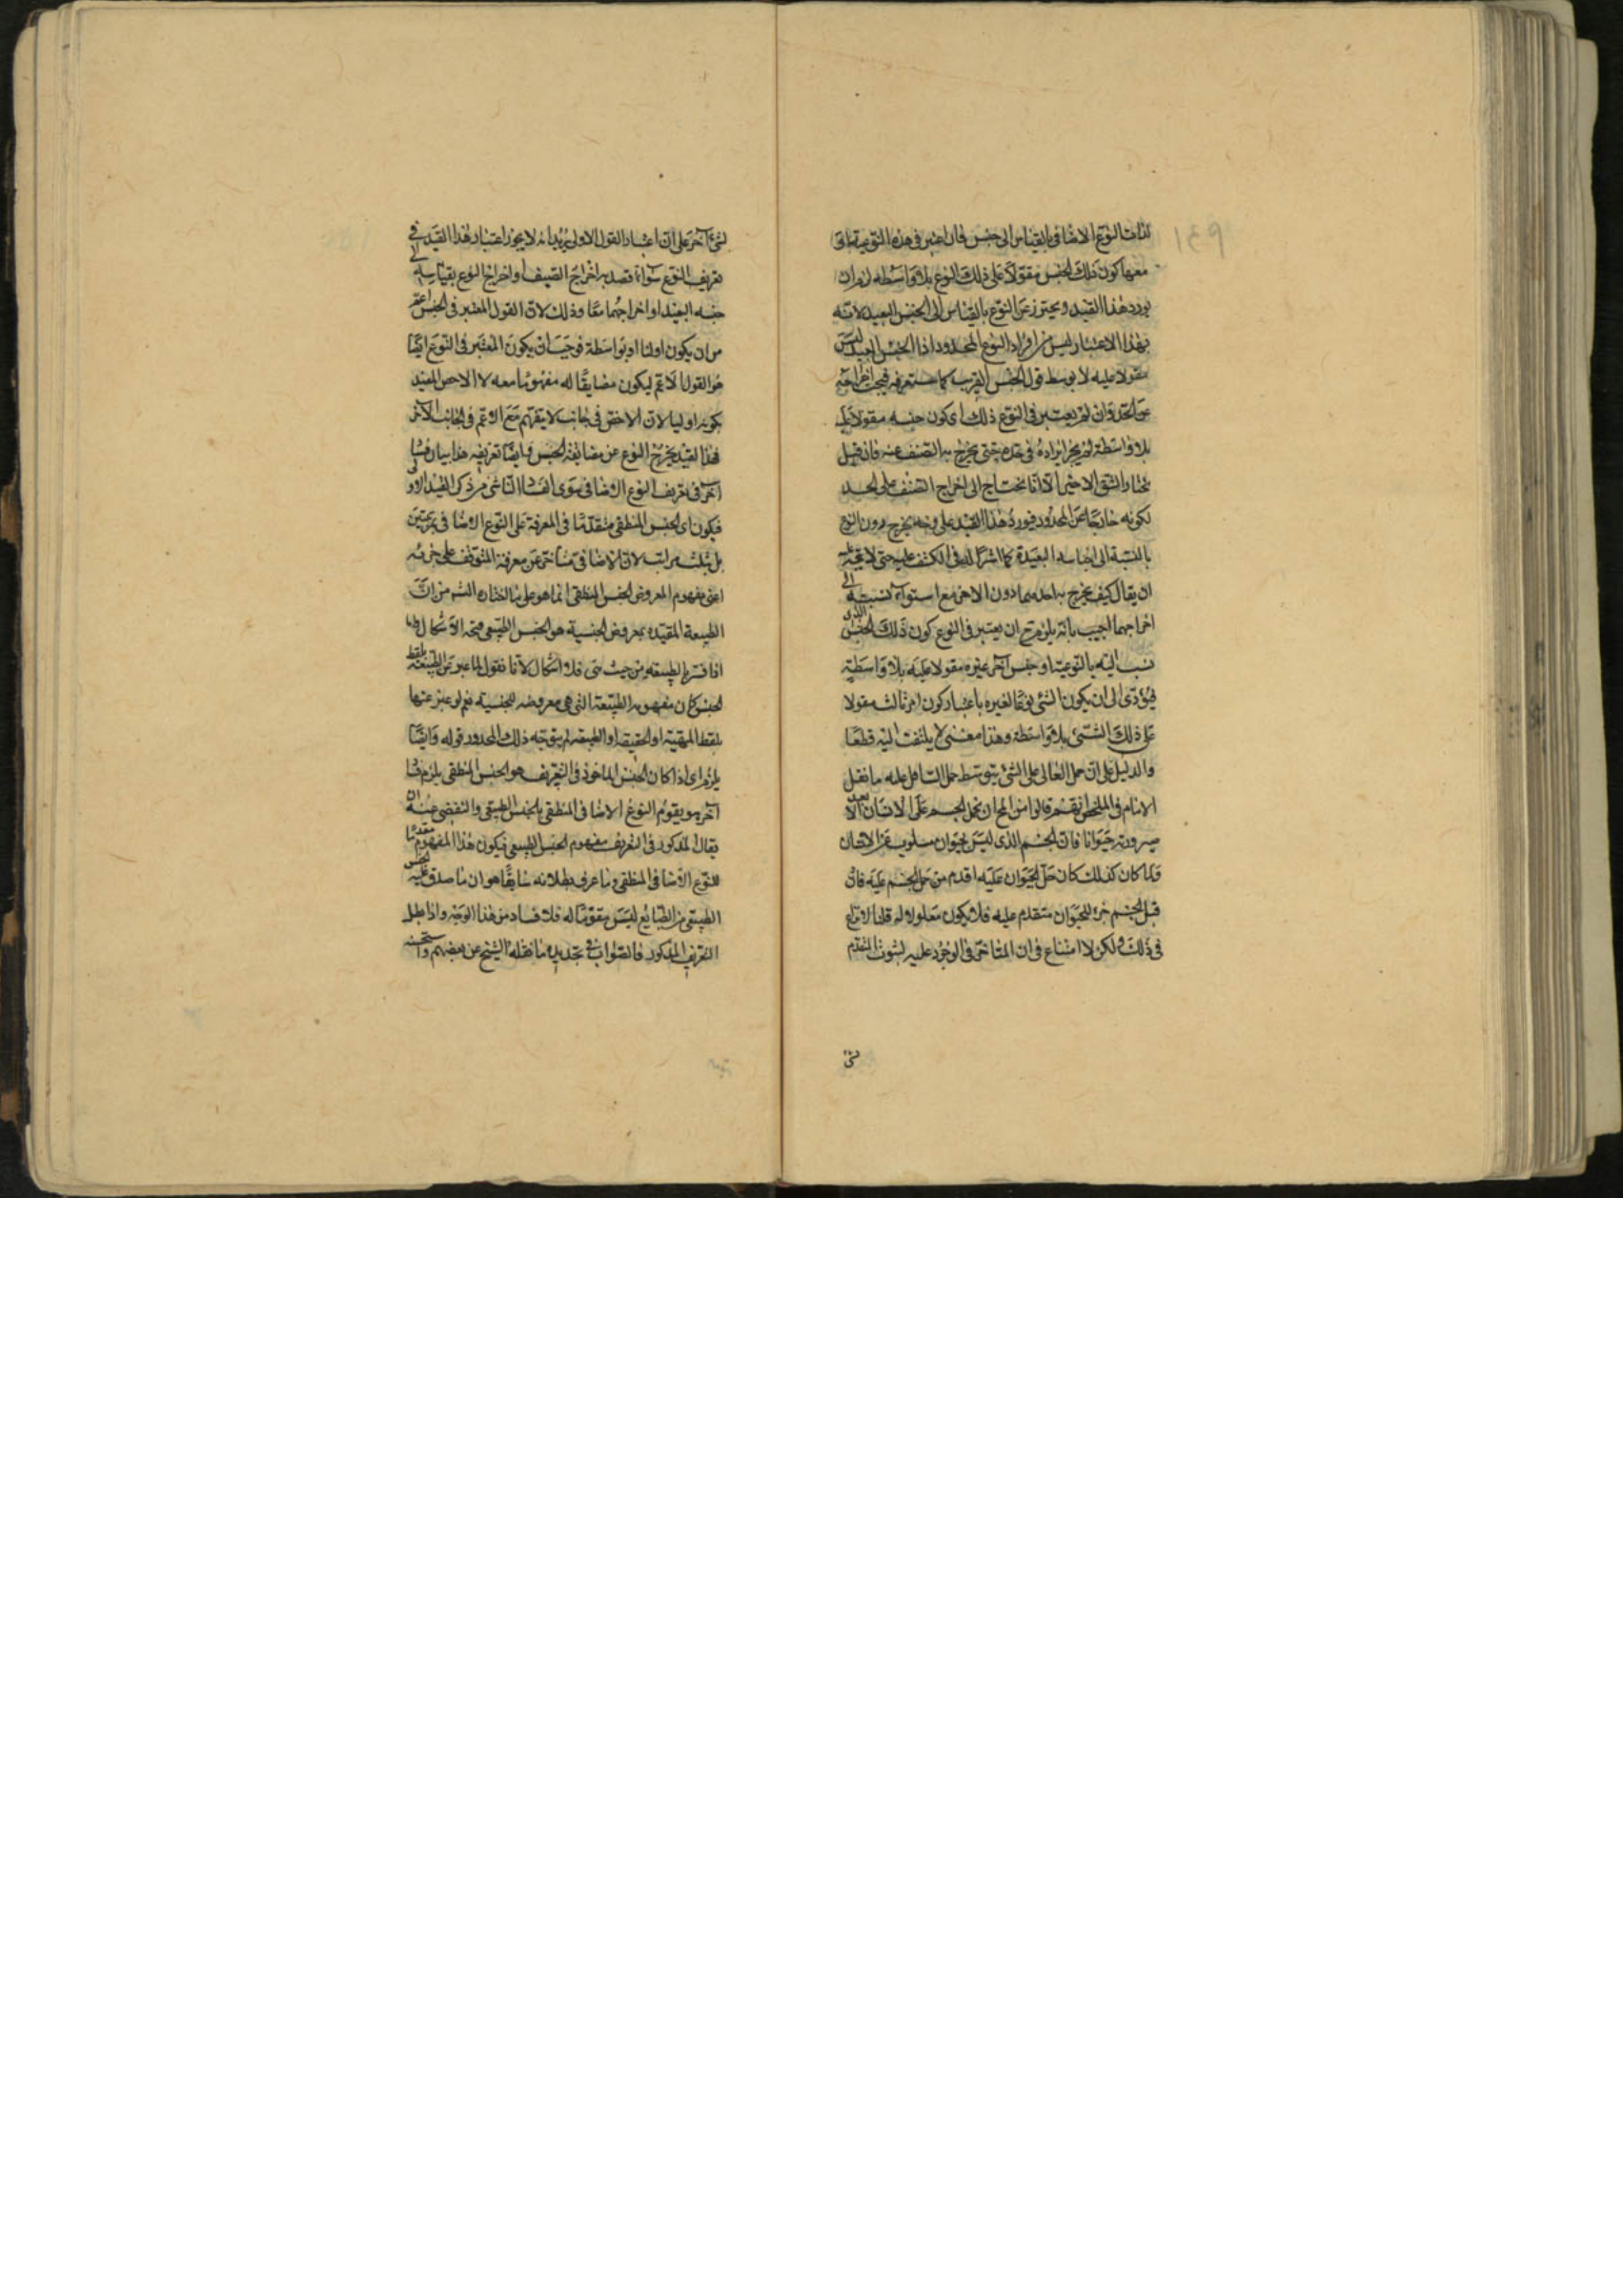 لذات النوع الاضافى بالقياس الى جنس فان اعتبر فى هذه النوعية
معها كون ذلك الجنس مقولا على ذلك النوع بلا واسطة لزم ان
يورد هذا القيد ويحترز عن النوع بالقياس الى الجنس البعيد لانه
بهذا الاعتبار ليس من افراد النوع المحدود اذا الجنس البعيد ليس
مقولا عليه الا بوسط قول الجنس القريب كما ستعرفه فيجب اخراجه
عن الحد وان لم يعتبر فى النوع ذلك اى كون جنسه مقولا عليه
بلا واسطة لم يجز ايراده فى حده حتى يخرج به الصنف عنه فان قيل
نختار الشق الاخير الا انا نحتاج الى اخراج الصنف على الحد
لكونه خارجا عن المحدود فيورد هذا القيد على وجه يخرج دون النوع
بالنسبة الى اجناسه البعيدة كما اشرنا اليه فى الكشف عليه حتى لا يتجه
ان يقال كيف يخرج به احدهما دون الاخر مع استواء نسبته الى
اخراجهما اجيب بانه يلزم ح ان يعتبر فى النوع كون ذلك الجنس الذى
نسب اليه بالنوعية او جنس آخر غيره مقولا عليه بلا واسطة
فيؤدى الى ان يكون الشئ نوعا لغيره باعتبار كون امر ثالث مقولا
على ذلك الشئ بلا واسطة وهذا معنى لا يلتفت اليه قطعا
والدليل على ان حمل العالى على الشئ يتوسط حمل السافل عليه ما نقل
الامام فى الملخص انهم قالوا من المح ان يحمل الجسم على الانسان الا بعد
صيرورته حيوانا فان الجسم الذى ليس بحيوان مسلوب عن الانسان
ولما كان كذلك كان حمل الحيوان عليه اقدم من حمل الجسم عليه فان
قيل الجسم جزء للحيوان متقدم عليه فلا يكون معلولا له قلنا لا نزاع
فى ذلك ولكن لا امتناع فى ان المتاخر فى الوجود علية لثبوت المتقدم
لشئ
لشئ آخر على ان اعتبار القول الاولى يريد انه لا يجوز اعتبار هذا القيد فى
تعريف النوع سواء قصد به اخراج الصنف او اخراج النوع بقياسه الى
جنسه البعيد او اخراجهما معا وذلك لان القول المعتبر فى الجنس اعم
من ان يكون اوليا او بواسطة فوجب ان يكون المعتبر فى النوع ايضا
هو القول الاعم ليكون مضايفا له مفهوما معه لا الاخص المقيد
بكونه اوليا لان الاخص فى جانب لا يفهم مع الاعم فى الجانب الآخر
فهذا القيد يخرج النوع عن مضايفة الجنس وايضا تعريفه هذا بيان فساد
آخر فى تعريف النوع الاضافى سوى الفساد الناشى من ذكر القيد الاولى
فيكون اى الجنس المنطقى متقدما فى المعرفة على النوع الاضافى بمرتبتين
بل بثلث مراتب لان الاضافى متاخر عن معرفة المتوقف على جزئه
اعنى مفهوم المعروض الجنس المنطقى انما هو على ما اختاره الشيخ من ان
الطبيعة المقيدة بمعروض الجنسية هو الجنس الطبيعى فيتجه الاشكال واما
اذا فسر بالطبيعة من حيث هى فلا اشكال لانا نقول لما عبر عن الطبيعة بلفظ
الجنس كان مفهومه الطبيعة التى هى معروضه للجنسية نعم لو عبر عنها
بلفظ المهية او الحقيقة او الطبيعة لم يتوجه ذلك المحدور قوله وايضا
يلزم اى اذا كان الجنس الماخوذ فى التعريف هو الجنس المنطقى يلزم فساد
آخر هو تقوم النوع الاضافى المنطقى بالجنس الطبيعى والتفصى عنه ان
يقال المذكور فى التعريف مفهوم الجنس الطبيعى فيكون هذا المفهوم مقدما
للنوع الاضافى المنطقى وما عرف بطلانه سابقا هو ان ما صدق عليه الجنس
الطبيعى من الطبايع ليس مقوما له فلا فساد من هذا الوجه واذا بطل
التعريف المذكور فالصواب فى تحديده ما نقله الشيخ عن بعضهم واستحسنه